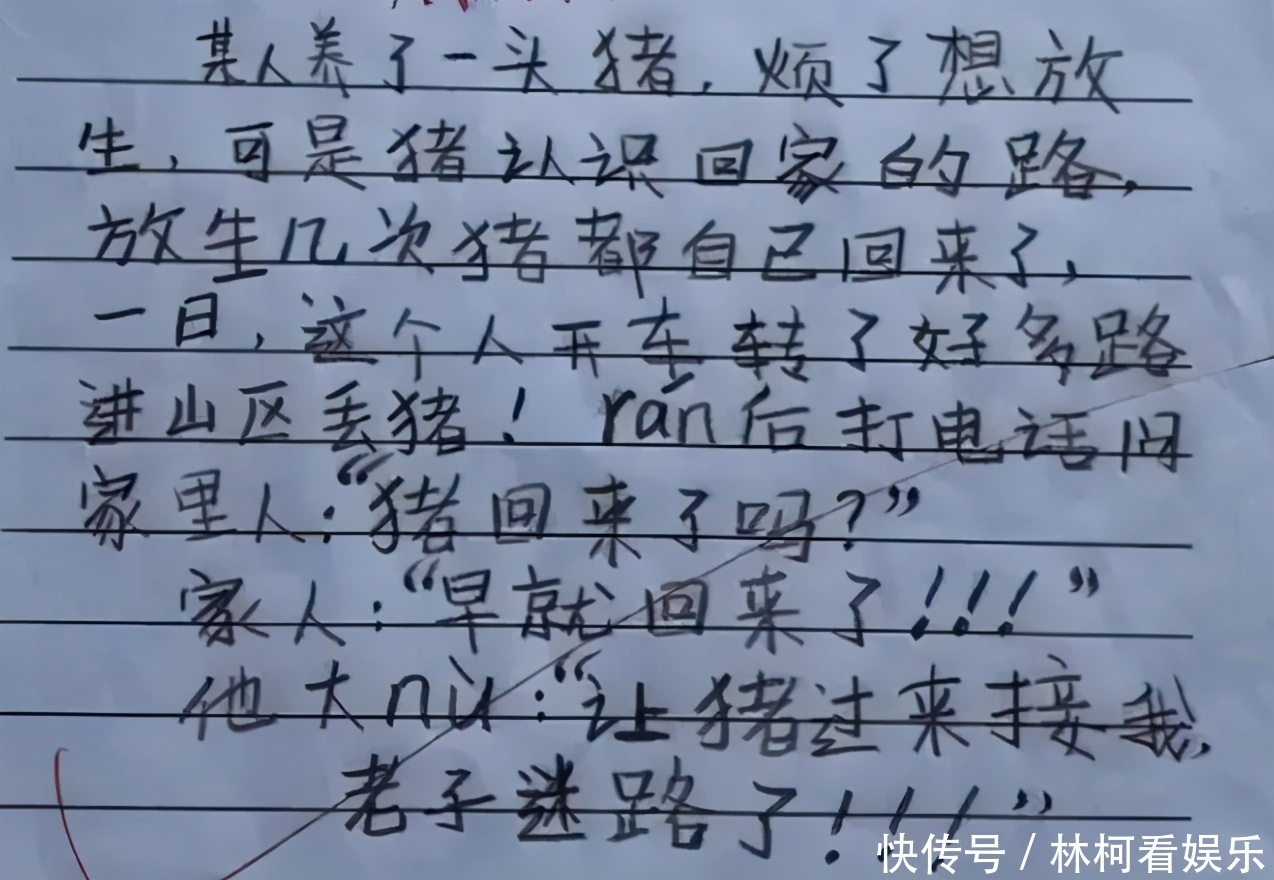 某人养了一头猪，烦了想放
生，可是猪认识回家的路，
放生几次猪都自己回来了，
一日，这个人开车转了好多路
进山区丢猪！rán后打电话问
家里人：“猪回来了吗？”
家人：“早就回来了！！！”
他大nù：“让猪过来接我，
老子谜路了！！！”
快传号 / 林柯看娱乐